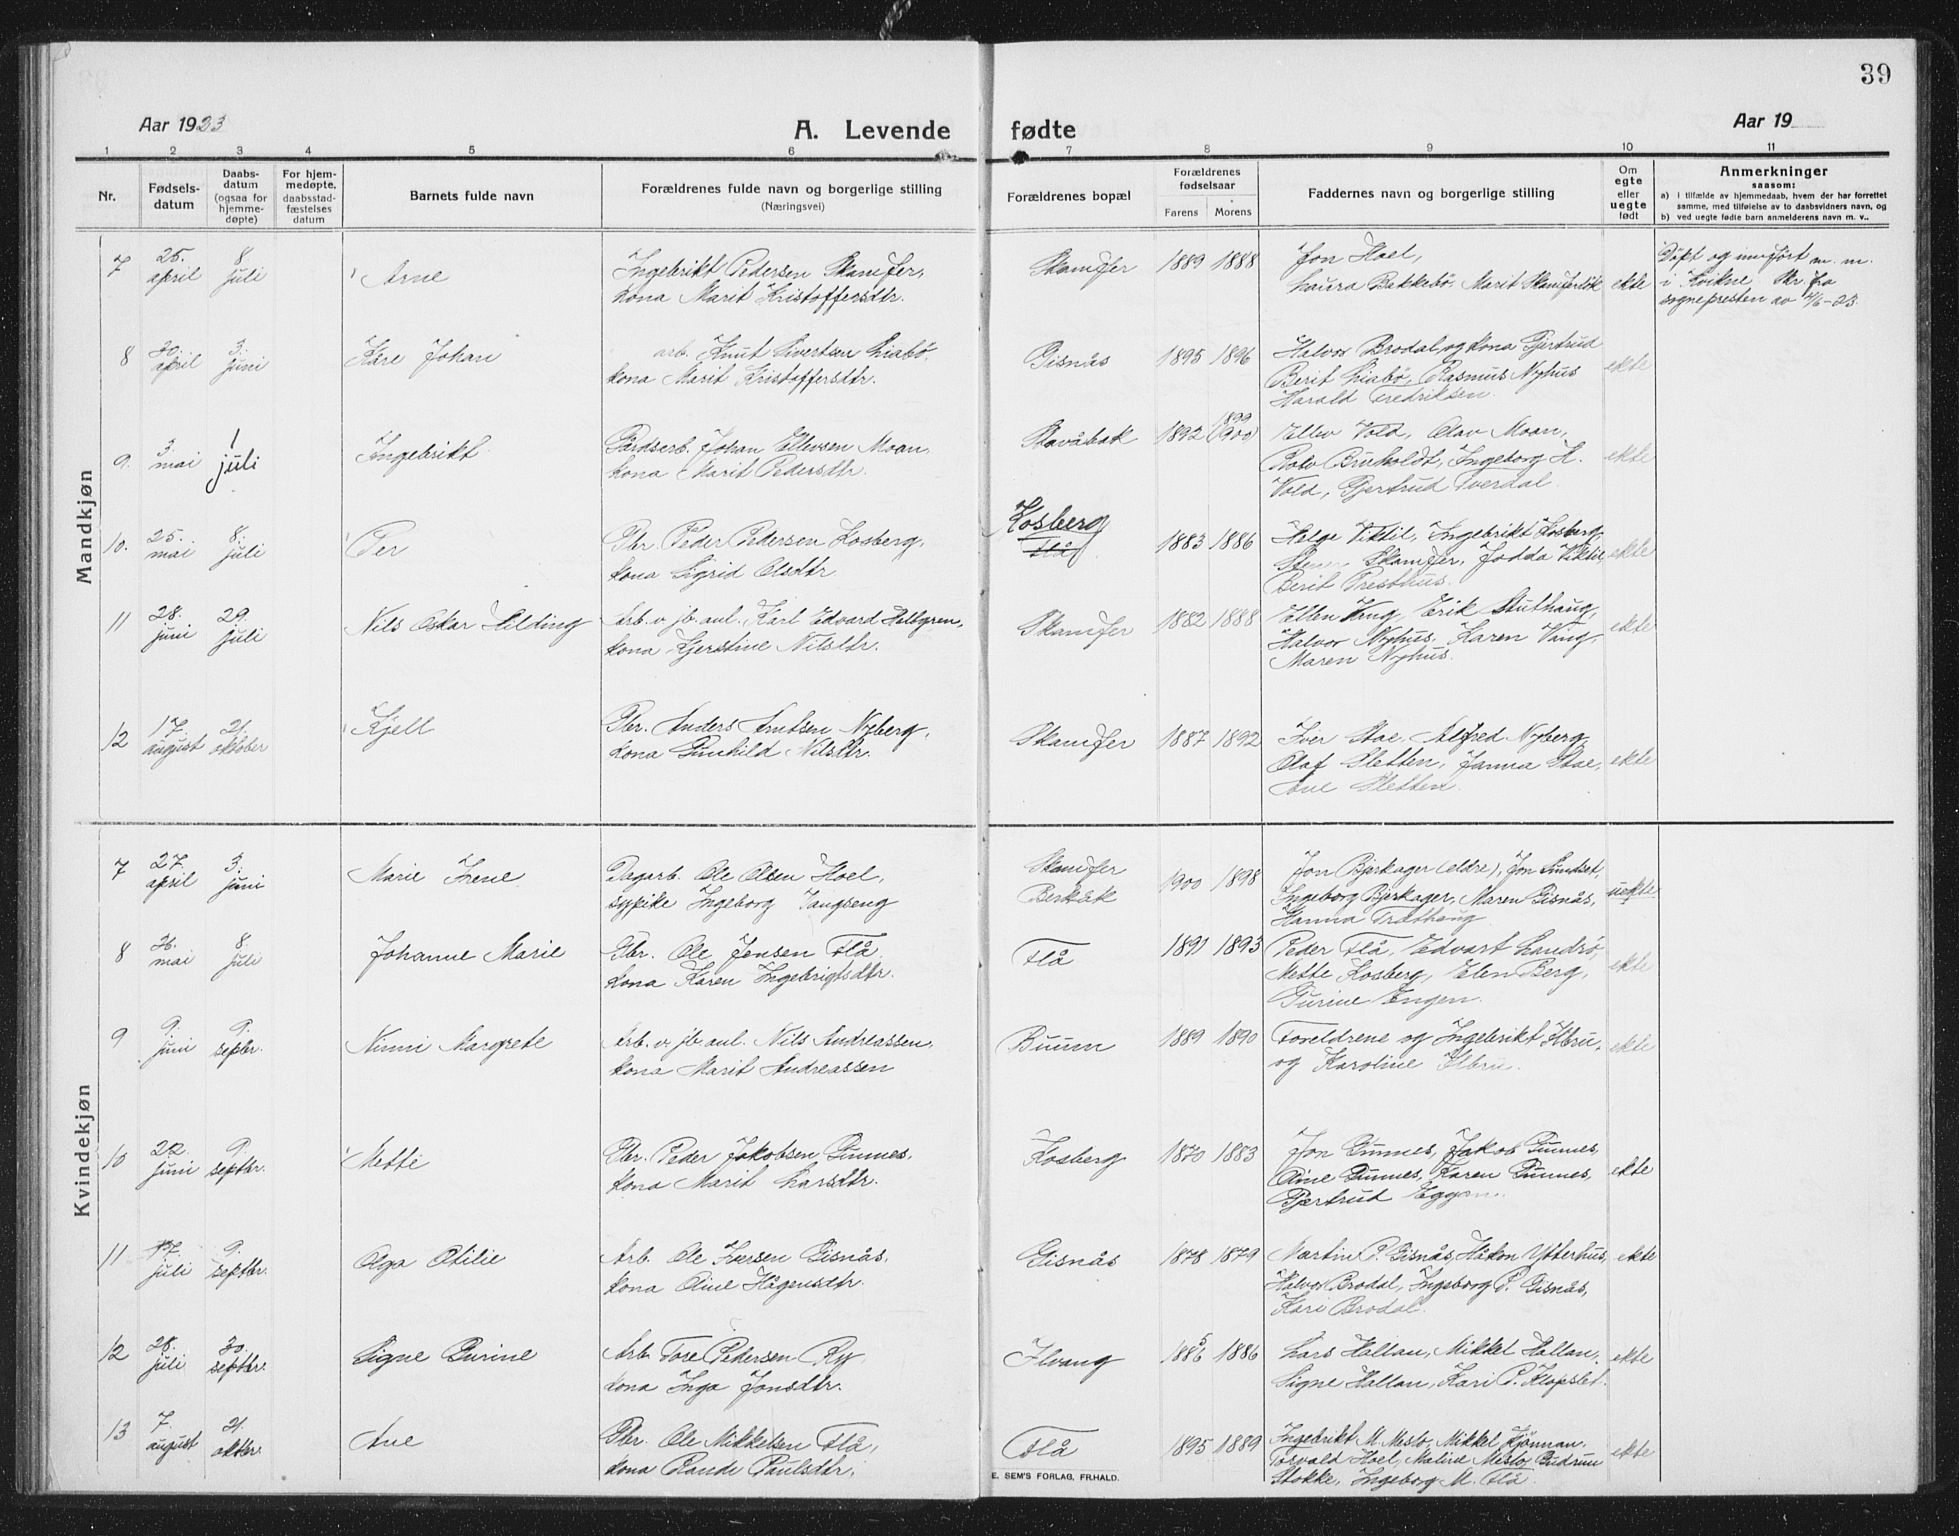 39
Aar 1923
A. Levende fødte
Aar 19
1 2 3 4 5 6 7 8 9 10 11
Nr.
Fødsels-
datum
Daabs-
datum
(ogsaa for
hjemme-
døpte)
For hjem-
medøpte,
daabsstad-
fæstelses
datum
Barnets fulde navn
Forældrenes fulde navn og borgerlige stilling
(Næringsvei)
Forældrenes bopæl
Forældrenes
fødselsaar
Farens Morens
Faddernes navn og borgerlige stilling
Om
egte
eller
uegte
født
Anmerkninger
saasom:
a) i tilfælde av hjemmedaab, hvem der har forrettet
samme, med tilføielse av to daabsvidners navn, og
b) ved uegte fødte barn anmelderens navn m. v..
Mandkjøn
7 25. april 8. juli Arne
Ingebrikt Pedersen Skamfer,
kona Marit Kristoffersdtr.
Skamfer 1889 1888
Jon Hoel,
Laura Bakkebø, Marit Skamferløk
ekte
Døpt og innført m. m.
i Kvikne Skr. fra
sognepresten av 4/6-23.
8 30 april 3. juni Kåre Johan
arb. Knut Sivertsen Liabø,
kona Marit Kristoffersdtr.
Gisnås 1895 1896
Halvor Brodal og kona Gjertrud
Berit Liabø, Rasmus Nyhus
Harald Fredriksen.
ekte
9. 3. mai 1 juli Ingebrikt
Gårdsarb. Johan Ellevsen Moan,
kona Marit Pedersdtr.
Skavåbak 1892 1899 (1900)
Ellev Vold, Olav Moan,
Rolv Bruholdt, Ingeborg K.
Vold, Gjertrud Tverdal.
ekte
10. 25. mai 8. juli Per
Gbr. Peder Pedersen Kosberg,
kona Sigrid Olsdtr
Kosberg
Flå
1883 1886
Helge Viktil, Ingebrikt Kosberg
Skamfer, Jodda Viktil,
Berit Presthus.
ekte
11 28. juni 29. juli Nils Oskar Hilding
Arb. v. jb. anl. Karl Edvard Hellgren,
kona Kjerstine Nilsdtr.
Skamfer 1882 1888
Ellen Vang, Erik Stuthaug,
Halvor Nyhus, Karen Vang,
Maren Nyhus.
ekte
12 17. august 21. oktober Kjell
Gbr. Anders Arntsen Nyberg,
kona Gunhild Nilsdtr.
Skamfer 1887 1892
Iver Stoe, Alfred Nyberg,
Olaf Sletten, Janna Stoe,
Sletten.
ekte
Kvindekjøn
7 27. april 3. juni Marie Irene
Dagarb. Ole Olsen Hoel,
sypike Ingeborg Vangseng
Skamfer
Berkåk
1900 1898
Jon Bjerkager (eldre), Jon Sundset,
Ingeborg Bjerkager, Maren Gisnås,
Hanna Træthaug
uekte
8 26. mai 8. juli Johanne Marie
Gbr. Ole Jensen Flå
kona Karen Ingebrigtsdtr.
Flå 1891 1893
Peder Flå, Edvart Landrø,
Mette Kosberg, Elen Berg,
Gurine Engen.
ekte
9 9. juni 9. septbr. Ninni Margrete
Arb. v. jb. anl. Nils Andreassen,
kona Marit Andreassen
Buum 1889 1890
Foreldrene og Ingebrikt Ilbru,
og Karoline Ilbru.
ekte
10 22. juni 9. septbr. Mette
Gbr. Peder Jakobsen Gunnes,
kona Marit Larsdtr.
Kosberg 1870 1883
Jon Gunnes, Jakob Gunnes,
Oline Gunnes, Karen Gunnes,
Gjertrud Eggan.
ekte
11 17. juli 9. septbr. Olga Otilie
Arb. Ole Iversen Gisnås,
kona Oline Hågensdtr.
Gisnås 1878 1879
Martin P. Gisnås, Håkon Ytterhus,
Halvor Brodal, Ingeborg P. Gisnås,
Kari Brodal.
ekte
12 28. juli 30. septbr. Signe Gurine
Arb. Tore Pedersen Ry
kona Inga Jonsdtr.
Ilvang 1886 1886
Lars Haltan, Mikkel Haltan,
Signe Haltan, Kari P. Klopslet.
ekte
13 7. august 21. oktbr. Ane
Gbr. Ole Mikkelsen Flå,
kona Rande Paulsdtr.
Flå 1895 1889
Ingebrikt M. Meslo, Mikkel Kjönnan,
Torvald Hoel, Meline Meslo, Gudrun
Stokke, Ingeborg M. Flå.
ekte
E. SEM'S FORLAG, FR.HALD.